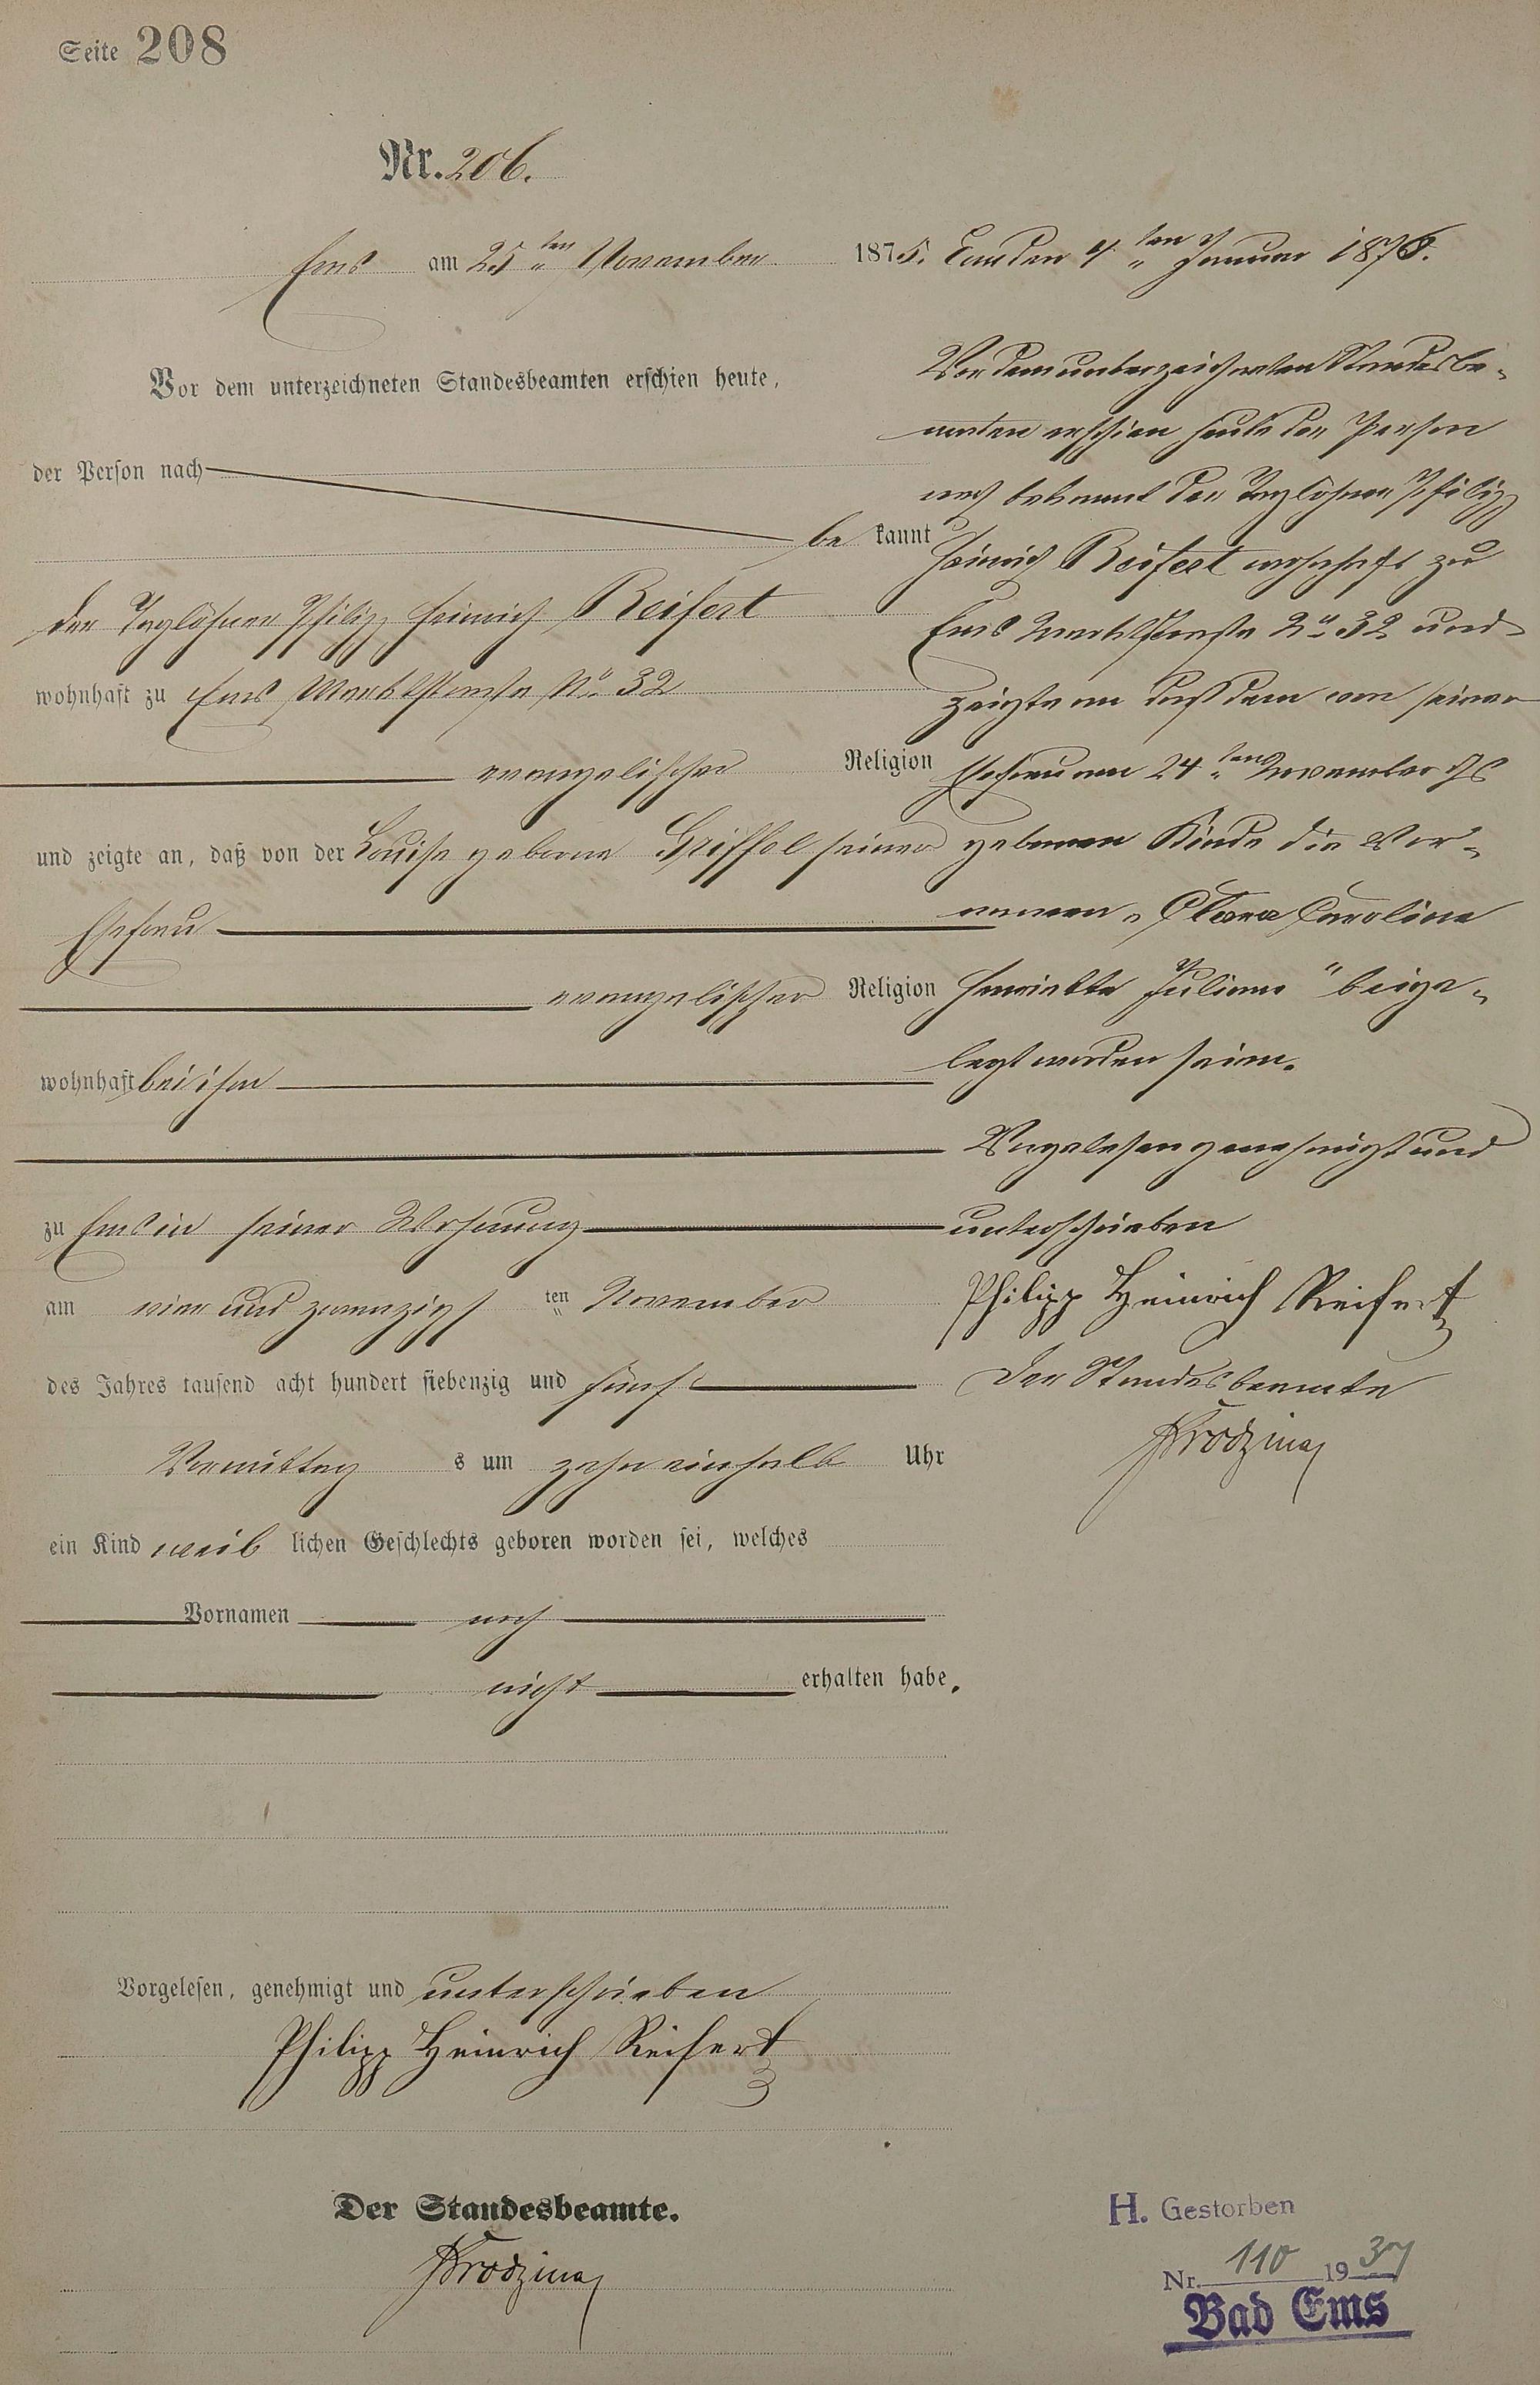 Seite 208
Nr. 206.
Ems am 25ten November 1875.
Vor dem unterzeichneten Standesbeamten erschien heute,
der Person nach
be kannt
der Taglöhner Philipp Heinrich Reifert
wohnhaft zu Ems Marktstraße No 32
evangelischer Religion
und zeigte an, daß von der Louise geborene Griffel seiner
Ehefrau
evangelischer Religion
wohnhaft bei ihm
zu Ems in seiner Wohnung
am vier und zwanzigsten November
des Jahres tausend acht hundert siebenzig und fünf
Vormittags um zehn einhalb Uhr
ein Kind weiblichen Geschlechts geboren worden sei, welches
Vornamen noch
nicht erhalten habe.
Vorgelesen, genehmigt und unterschrieben
Philipp Heinrich Reifert
Der Standesbeamte.
Ems den 4ten Januar 1876.
Vor dem unterzeichneten Standesbe-
amten erschien heute der Person
nach bekannt der Taglöhner Philipp
Heinrich Reifert wohnhaft zu
Ems Marktstraße No 32 und
zeigte an daß dem von seiner
Ehefrau am 24ten November
gebornen Kinde die Vor-
namen "Clara Caroline
Henriette Juliane" beige-
legt worden seien.
Vorgelesen genehmigt und
unterschrieben
Philipp Heinrich Reifert
Der Standesbeamte
H. Gestorben
Nr. 110 1937
Bad Ems